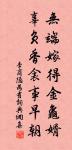 無端嫁得金龜婿
辜負香衾事早朝
李商隱為有詩與個集